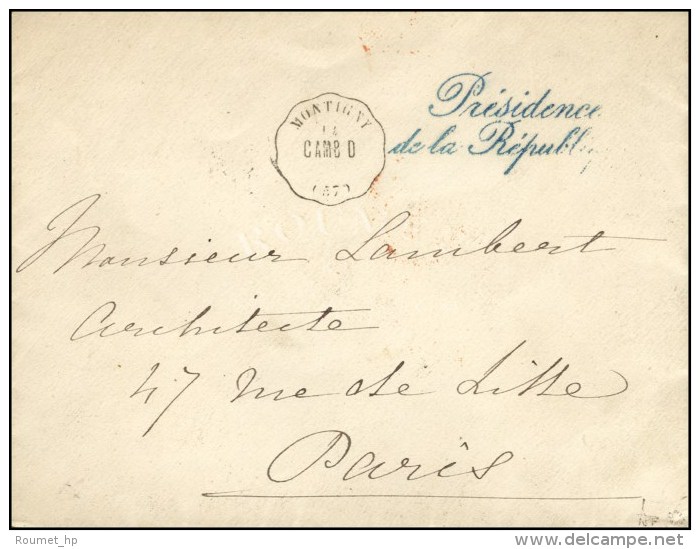 Présidence
de la Républ
MONTIGNY
14
CAMB D
(57)
Monsieur Lambert
Architecte
47 rue de Lille
Paris
Roumet_hp
delcampe.net